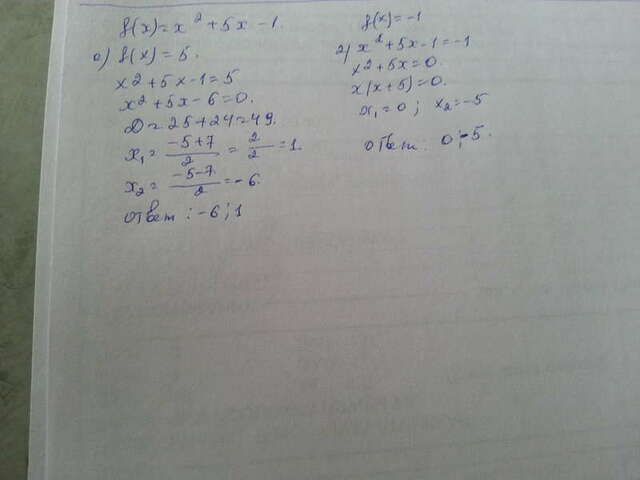 f(x)=x²+5x-1.
а) f(x)=5.
x²+5x-1=5
x²+5x-6=0.
D=25+24=49.
x₁=(-5+7)/2=2/2=1.
x₂=(-5-7)/2=-6.
ответ: -6; 1
f(x)=-1
2) x²+5x-1=-1
x²+5x=0.
x(x+5)=0.
x₁=0; x₂=-5
ответ: 0; -5.